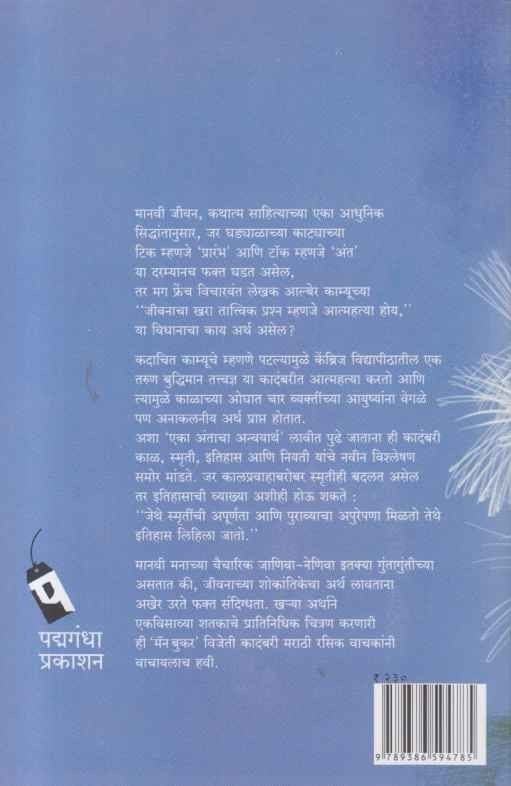 मानवी जीवन, कथात्म साहित्याच्या एका आधुनिक
सिद्धांतानुसार, जर घड्याळाच्या काट्याच्या
टिक म्हणजे 'प्रारंभ' आणि टॉक म्हणजे 'अंत'
या दरम्यानच फक्त घडत असेल,
तर मग फ्रेंच विचारवंत लेखक आल्बेर काम्यूच्या
''जीवनाचा खरा तात्त्विक प्रश्न म्हणजे आत्महत्या होय,''
या विधानाचा काय अर्थ असेल?
कदाचित काम्यूचे म्हणणे पटल्यामुळे केंब्रिज विद्यापीठातील एक
तरुण बुद्धिमान तत्त्वज्ञ या कादंबरीत आत्महत्या करतो आणि
त्यामुळे काळाच्या ओघात चार व्यक्तींच्या आयुष्यांना वेगळे
पण अनाकलनीय अर्थ प्राप्त होतात.
अशा 'एका अंताचा अन्वयार्थ' लावीत पुढे जाताना ही कादंबरी
काळ, स्मृती, इतिहास आणि नियती यांचे नवीन विश्लेषण
समोर मांडते. जर कालप्रवाहाबरोबर स्मृतीही बदलत असेल
तर इतिहासाची व्याख्या अशीही होऊ शकते :
''जेथे स्मृतींची अपूर्णता आणि पुराव्याचा अपुरेपणा मिळतो तेथे
इतिहास लिहिला जातो.''
मानवी मनाच्या वैचारिक जाणिवा-नेणिवा इतक्या गुंतागुंतीच्या
असतात की, जीवनाच्या शोकांतिकेचा अर्थ लावताना
अखेर उरते फक्त संदिग्धता. खऱ्या अर्थाने
एकविसाव्या शतकाचे प्रातिनिधिक चित्रण करणारी
ही 'मॅन बुकर' विजेती कादंबरी मराठी रसिक वाचकांनी
वाचायलाच हवी.
प
पद्मगंधा
प्रकाशन
₹ २३०
9 789386 594785